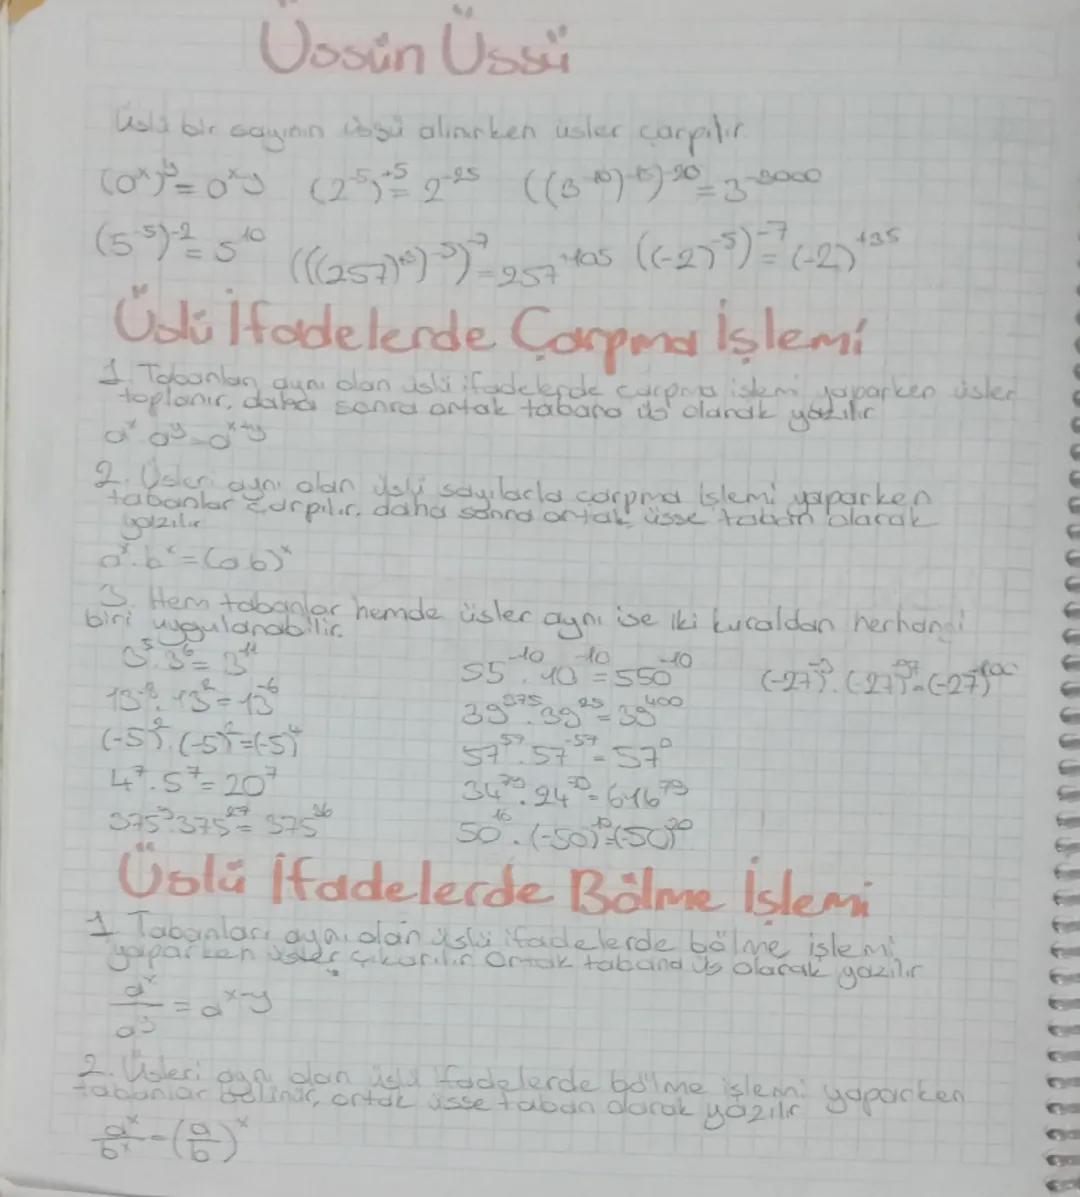 Üssün Üssü
Üslü bir sayının üssü alınırken üsler çarpılır.
(a^x)^y = a^x·y (2^-5)^+5 = 2^-25 ((3^-10)^-15)^-20 = 3^-3000
(5^-5)^-2 = 5^10 (((257)^+3)^-5)^-7 = 257^+105 ((-2)^-5)^-7 = (-2)^+35
Üslü İfadelerde Çarpma İşlemi
1. Tabanları aynı olan üslü ifadelerde çarpma işlemi yaparken üsler
toplanır, daha sonra ortak tabana üs olarak yazılır
a^x · a^y = a^x+y
2. Üsleri aynı olan üslü sayılarla çarpma işlemi yaparken
tabanlar çarpılır, daha sonra ortak üsse taban olarak
yazılır
a^x · b^x = (a·b)^x
3. Hem tabanlar hemde üsler aynı ise iki kuraldan herhangi
biri uygulanabilir.
3^5 · 3^6 = 3^11 55^-10 · 10^-10 = 550^-10 (-27)^-3 · (-27)^-97 = (-27)^-100
13^-8 · 13^2 = 13^-6 39^375 · 39^25 = 39^400
(-5)^2 · (-5)^2 = (-5)^4 57^57 · 57^-57 = 57^0
4^7 · 5^7 = 20^7 34^79 · 24^79 = 616^79
375^9 · 375^27 = 375^36 50^10 · (-50)^10 = (-50)^20
Üslü İfadelerde Bölme İşlemi
1 Tabanları aynı olan üslü ifadelerde bölme işlemi
yaparken üsler çıkarılır ortak tabana üs olarak yazılır
a^x / a^y = a^x-y
2. Üsleri aynı olan üslü ifadelerde bölme işlemi yaparken
tabanlar bölünür, ortak üsse taban olarak yazılır
a^x / b^x = (a/b)^x